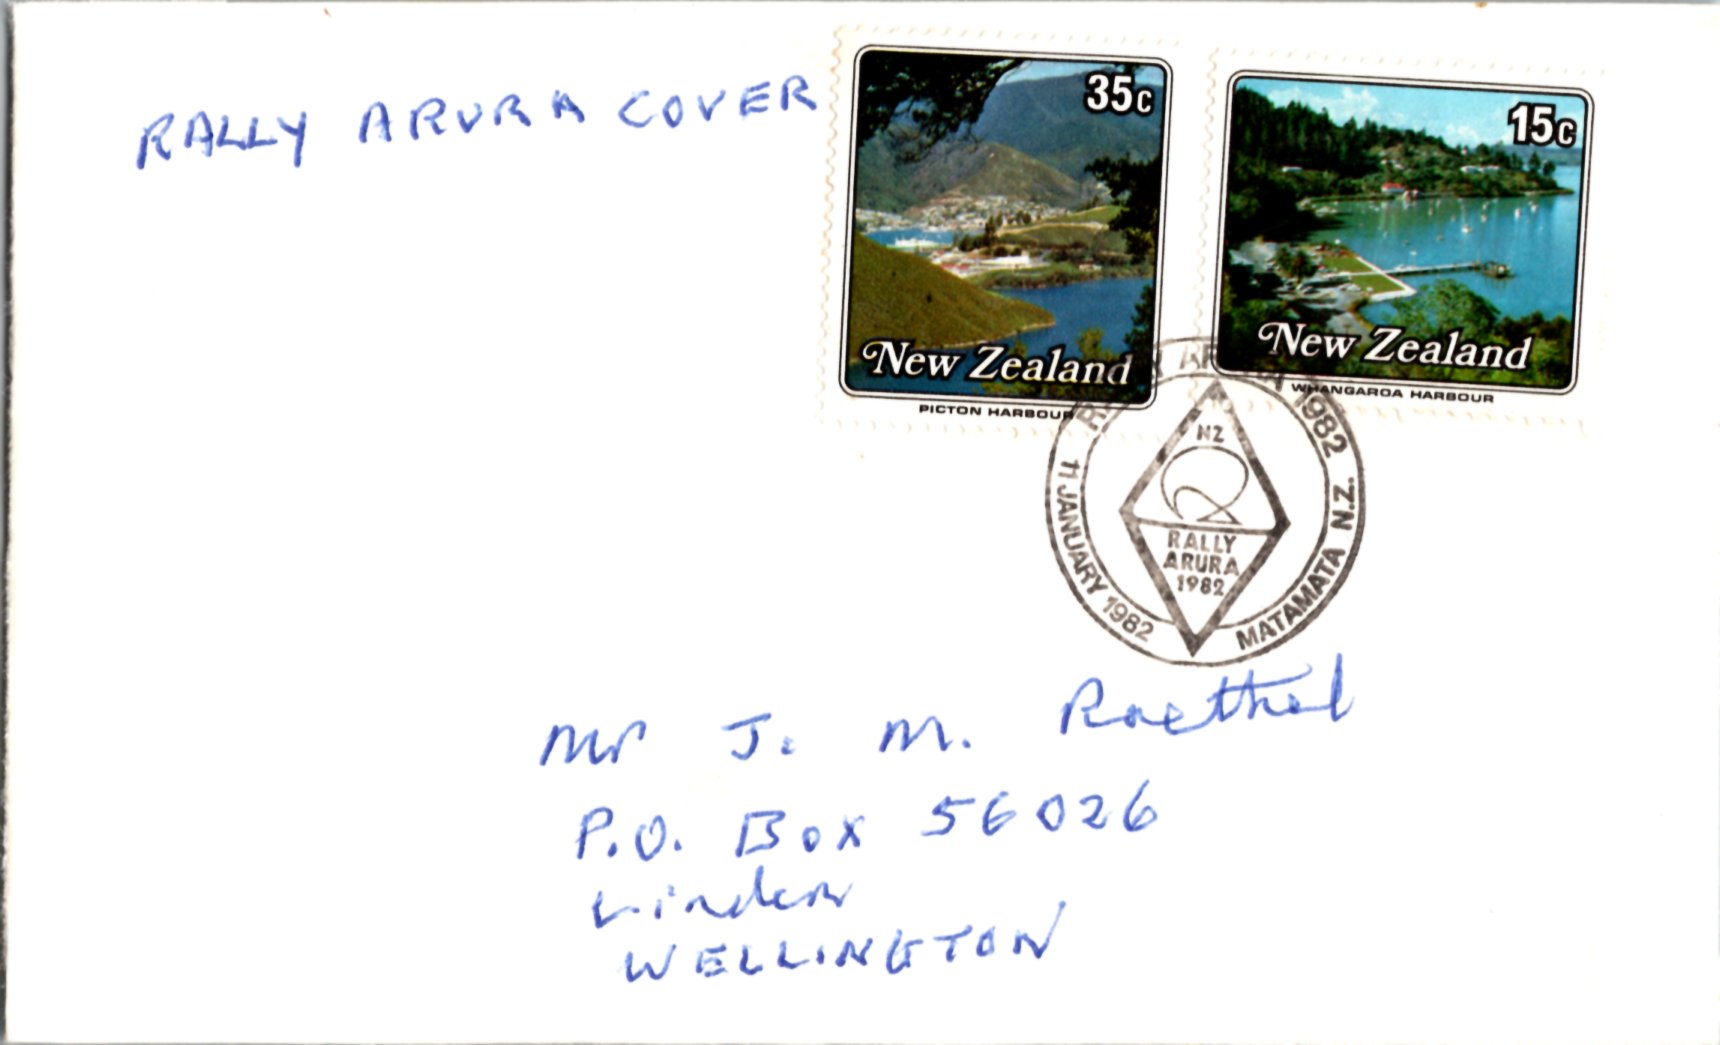 RALLY ARURA COVER
35c
New Zealand
PICTON HARBOUR
15c
New Zealand
WHANGAROA HARBOUR
RALLY ARURA 1982
11 JANUARY 1982
MATAMATA N.Z.
NZ
RALLY
ARURA
1982
Mr J. M. Raethel
P.O. Box 56026
Linden
WELLINGTON